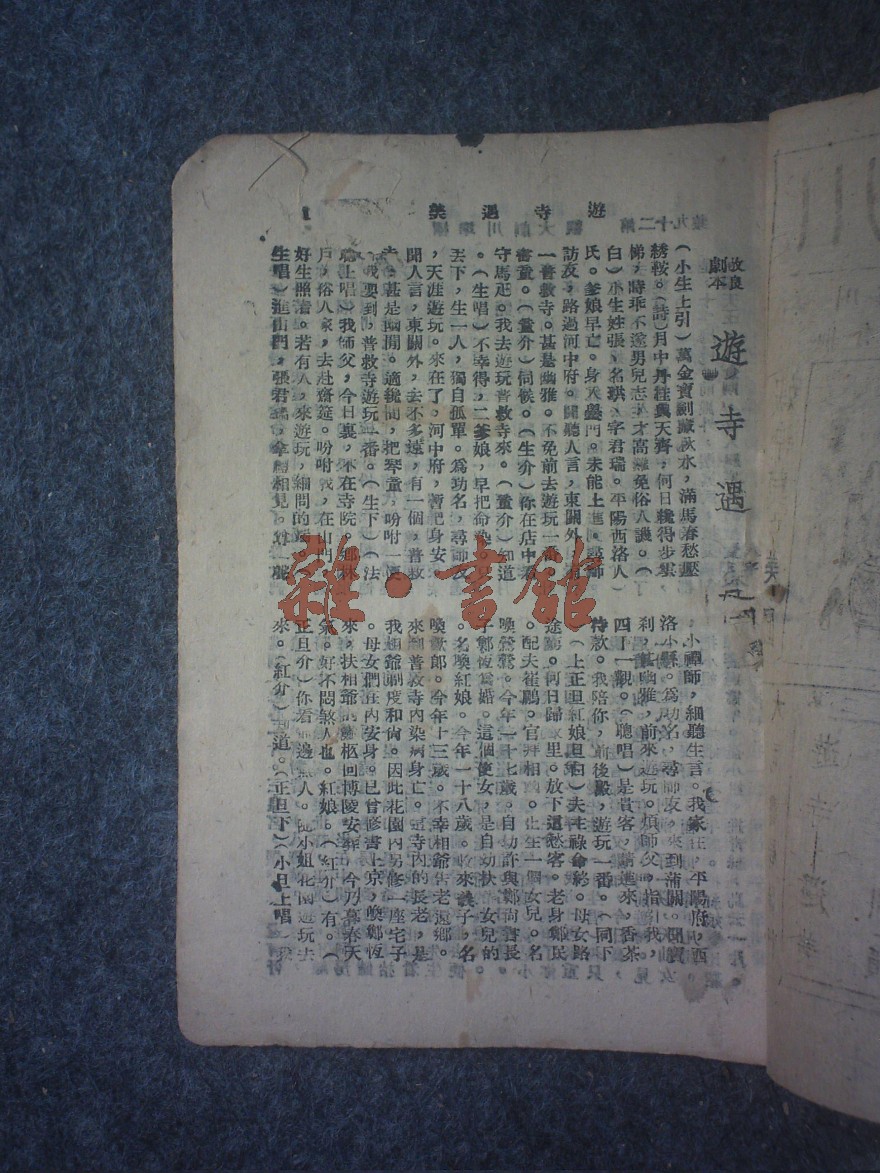 遊寺遇美
改良
劇本
遊寺遇
(小生上引)萬金寶劍藏秋水，滿馬春愁壓
綉鞍。(詩)月中丹桂與天齊，何日纔得步雲
梯，時乖不遂男兒志，才高難免俗人譏。(
白)小生姓張，名珙，字君瑞。平陽西洛人
氏。爹娘早亡。身入黌門。未能上進。尋師
訪友，路過河中府。聞聽人言，東關外，有
一普救寺。甚是幽雅。不免前去遊玩一番。
書童。(童介)伺候。(生介)你在店中看
守馬疋。我去遊玩普救寺來。(童介)知道
。(生唱)不幸得，二爹娘，早把命染，只
丟下，生一人，獨自孤單。為功名，尋師友
，天涯遊玩。來在了，河中府，暫把身安。
聞人言，東關外，去不多遠，有一個，普救
寺，甚是幽閒。適纔間，把琴童，吩咐一便
，我要到，普救寺遊玩一番。(生下)(法
聰上唱)我師父，今日裏，不在寺院，鄉林
戶，俗人家，去赴齋筵。吩咐我，在山門，
好生照看。若有人，來遊玩，細問的端。(
生唱)進山門，張君瑞，拿禮相見，尊一聲
小禪師，細聽生言。我家住，平陽府，西
洛小縣。為功名，尋師友，來到蒲關。聞寶
刹，甚幽雅，前來遊玩。煩師父，指引我，
四下一觀。(聰唱)是貴客，請進來，香茶
待款。我陪你，前後殿，遊玩一番。(同下
)(上正旦紅娘里白)夫主祿命終。母女路
途窮。何日歸家里。放下這愁容。老身鄭氏
。配夫崔鵬。官拜相國。止生一個女兒。名
喚鶯鶯。今年一十七歲。自幼許與鄭尚書長
子鄭恆為婚。這個使女，是自幼扶侍女兒的
。名喚紅娘。今年一十八歲。收來義子，名
喚歡郎。今年十三歲。不幸相爺告老還鄉。
來到普救寺內染病身亡。這寺內的長老，是
我相爺剃度和尚。因此花園內另修一座宅子
。母女們在內安身。已曾修書上京，喚鄭恆
來，扶相爺的靈柩回博陵安葬。今乃暮春天
氣。好不悶煞人也。紅娘。(紅介)有。(
正旦介)你看那邊無人。陪小姐花園遊玩去
來。(紅介)知道。(正旦下)(小旦上唱)我
雜·書館